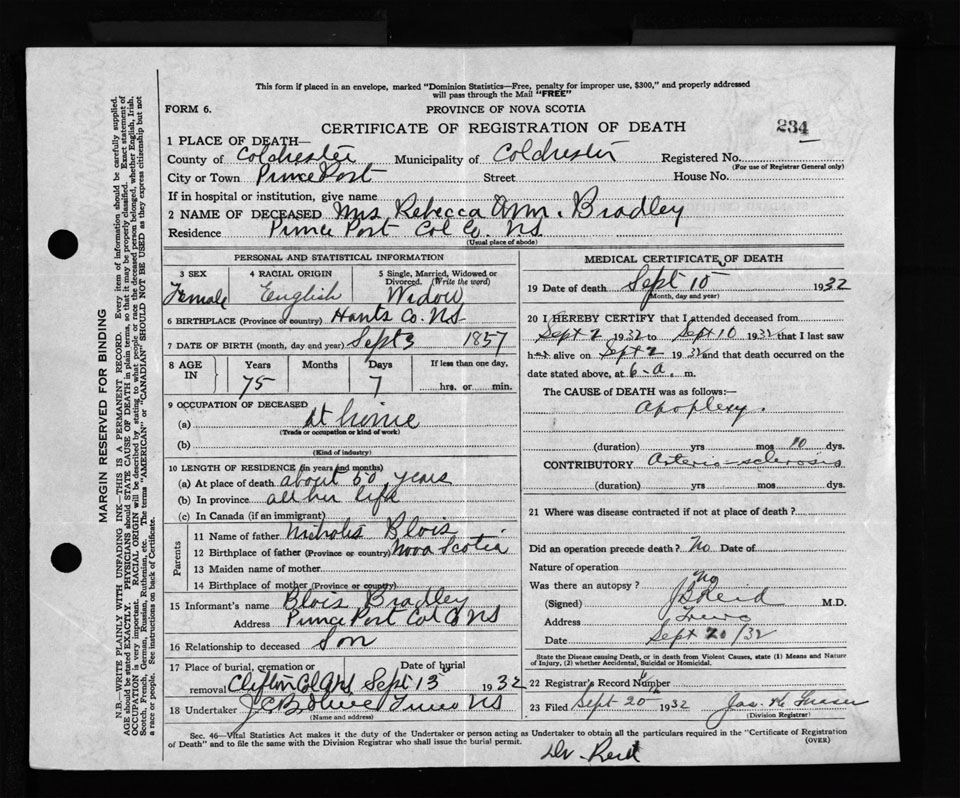 This form if placed in an envelope, marked "Dominion Statistics—Free, penalty for improper use, $300," and properly addressed
will pass through the Mail "FREE"
FORM 6.
PROVINCE OF NOVA SCOTIA
CERTIFICATE OF REGISTRATION OF DEATH
234
1 PLACE OF DEATH—
County of Colchester Municipality of Colchester Registered No.
(For use of Registrar General only)
City or Town Prince Port Street House No.
If in hospital or institution, give name
2 NAME OF DECEASED Mrs Rebecca Ann. Bradley
Residence Prince Port Col Co. NS
(Usual place of abode)
PERSONAL AND STATISTICAL INFORMATION
3 SEX 4 RACIAL ORIGIN 5 Single, Married, Widowed or
Divorced. (Write the word)
Female English Widow
6 BIRTHPLACE (Province or country) Hants Co. NS
7 DATE OF BIRTH (month, day and year) Sept 3 1857
8 AGE IN Years Months Days If less than one day,
75 7 hrs. or min.
9 OCCUPATION OF DECEASED
(a) At home
(Trade or occupation or kind of work)
(b)
(Kind of industry)
10 LENGTH OF RESIDENCE (in years and months)
(a) At place of death about 50 years
(b) In province all her life
(c) In Canada (if an immigrant)
Parents
11 Name of father Nicholas Blois
12 Birthplace of father (Province or country) Nova Scotia
13 Maiden name of mother
14 Birthplace of mother (Province or country)
15 Informant's name Blois Bradley
Address Prince Port Col Co NS
16 Relationship to deceased Son
17 Place of burial, cremation or Date of burial
removal Clifton Col Co NS Sept 13 1932
18 Undertaker Truro NS
(Name and address)
MEDICAL CERTIFICATE OF DEATH
19 Date of death Sept 10 1932
(Month, day and year)
20 I HEREBY CERTIFY that I attended deceased from
Sept 2 1932 to Sept 10 1932 that I last saw
her alive on Sept 2 1932 and that death occurred on
date stated above, at 6-a. m.
The CAUSE OF DEATH was as follows:
Apoplexy.
(duration) yrs mos 10 dys.
CONTRIBUTORY Arterio-sclerosis
(duration) yrs mos dys.
21 Where was disease contracted if not at place of death?
Did an operation precede death? No Date of
Nature of operation
Was there an autopsy? No
(Signed) J B Reid M.D.
Address Truro
Date Sept 20/32
State the Disease causing Death, or in death from Violent Causes, state (1) Means and Nature
of Injury, (2) whether Accidental, Suicidal or Homicidal.
22 Registrar's Record Number
23 Filed Sept 20 1932 Jas. Fraser
(Division Registrar)
Sec. 46—Vital Statistics Act makes it the duty of the Undertaker or person acting as Undertaker to obtain all the particulars required in the "Certificate of Registration
of Death" and to file the same with the Division Registrar who shall issue the burial permit.
(OVER)
Dr. Reid
MARGIN RESERVED FOR BINDING
N.B.—WRITE PLAINLY WITH UNFADING INK—THIS IS A PERMANENT RECORD. Every item of information should be carefully supplied.
AGE should be stated EXACTLY. PHYSICIANS should STATE CAUSE OF DEATH in plain terms, so that it may be properly classified. Exact statement of
OCCUPATION is very important. RACIAL ORIGIN will be described by stating to what people or race the deceased person belonged, whether English, Irish,
Scotch, French, German, Russian, Ruthenian, etc. The terms "AMERICAN" or "CANADIAN" SHOULD NOT BE USED as they express citizenship but not
a race or people. See instructions on back of Certificate.